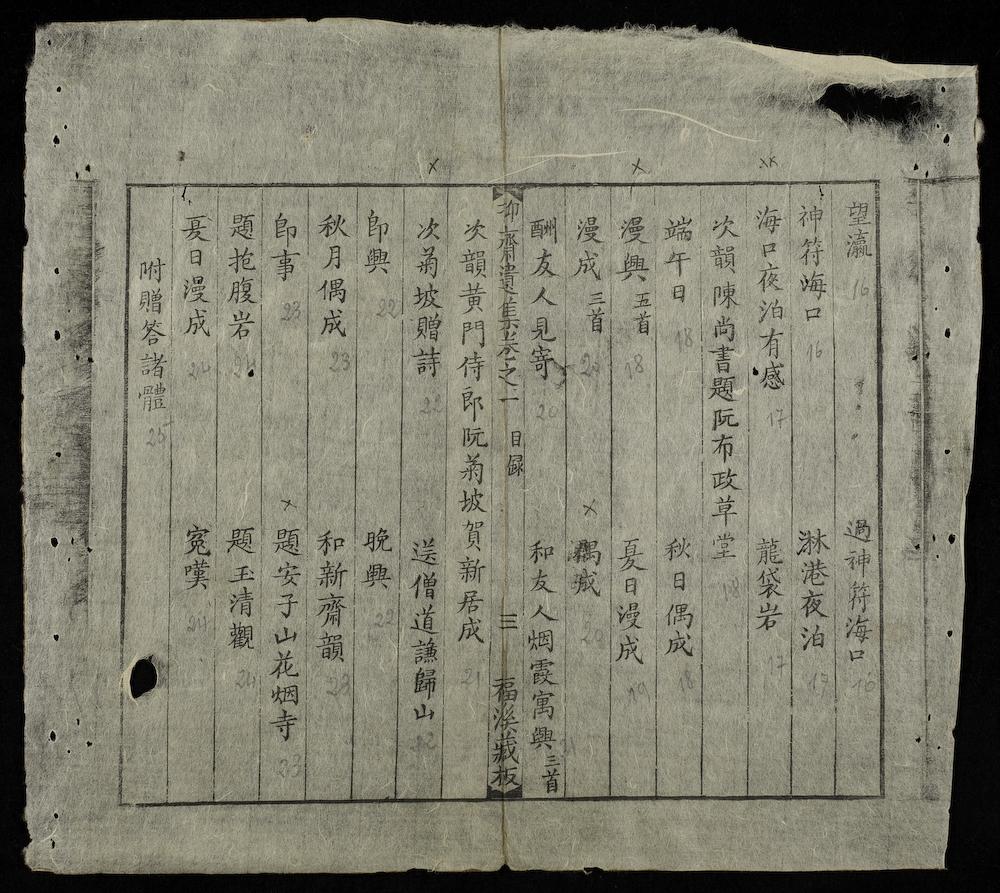 望瀛 16 過神符海口 16
神符海口 16 淋港夜泊 17
海口夜泊有感 17 龍袋岩 17
次韻陳尚書題阮布政草堂 18
端午日 18 秋日偶成 18
漫興五首 18 夏日漫成 19
漫成三首 20 偶成 20
酬友人見寄 20 和友人烟霞寓興三首 21
抑齋遺集卷之一 目錄 三 福溪藏板
次韻黃門侍郎阮菊坡賀新居成 21
次菊坡贈詩 22 送僧道謙歸山 22
即興 22 晚興 22
秋月偶成 23 和新齋韻 23
即事 23 題安子山花烟寺 23
題抱腹岩 24 題玉清觀 24
夏日漫成 24 冤嘆 24
附贈答諸體 25